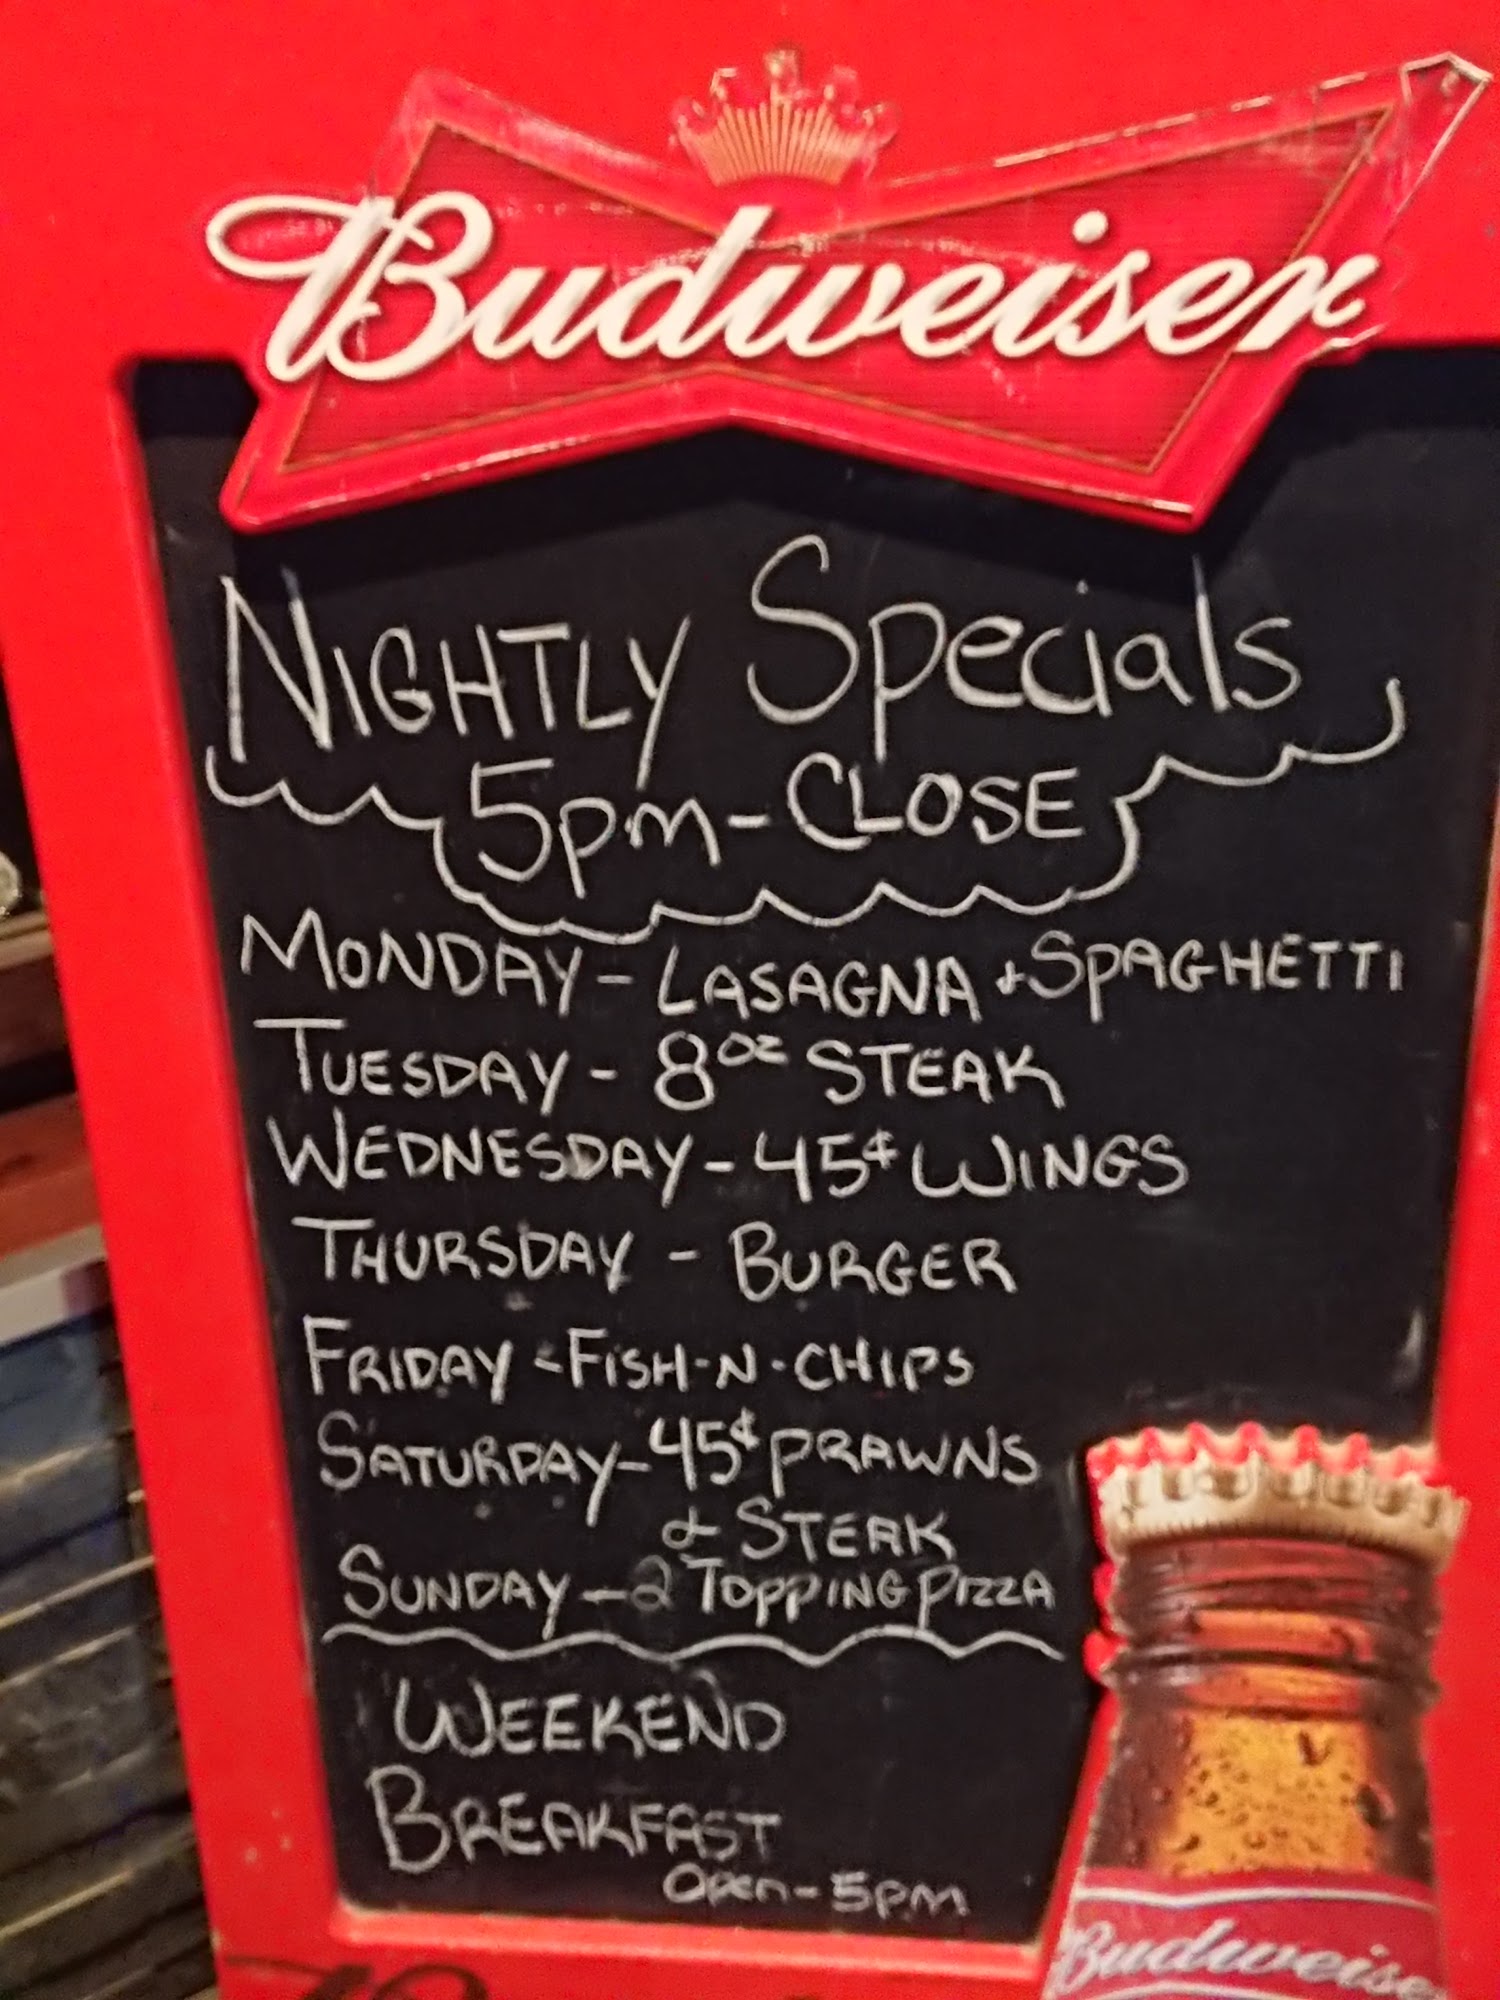 Budweiser
NIGHTLY Specials
5pm - CLOSE
MONDAY - LASAGNA + SPAGHETTI
TUESDAY - 8oz STEAK
WEDNESDAY - 45¢ WINGS
THURSDAY - BURGER
FRIDAY - FISH-N-CHIPS
SATURDAY - 45¢ PRAWNS
& STEAK
SUNDAY - 2 TOPPING PIZZA
WEEKEND
BREAKFAST
Open - 5PM
Budweiser